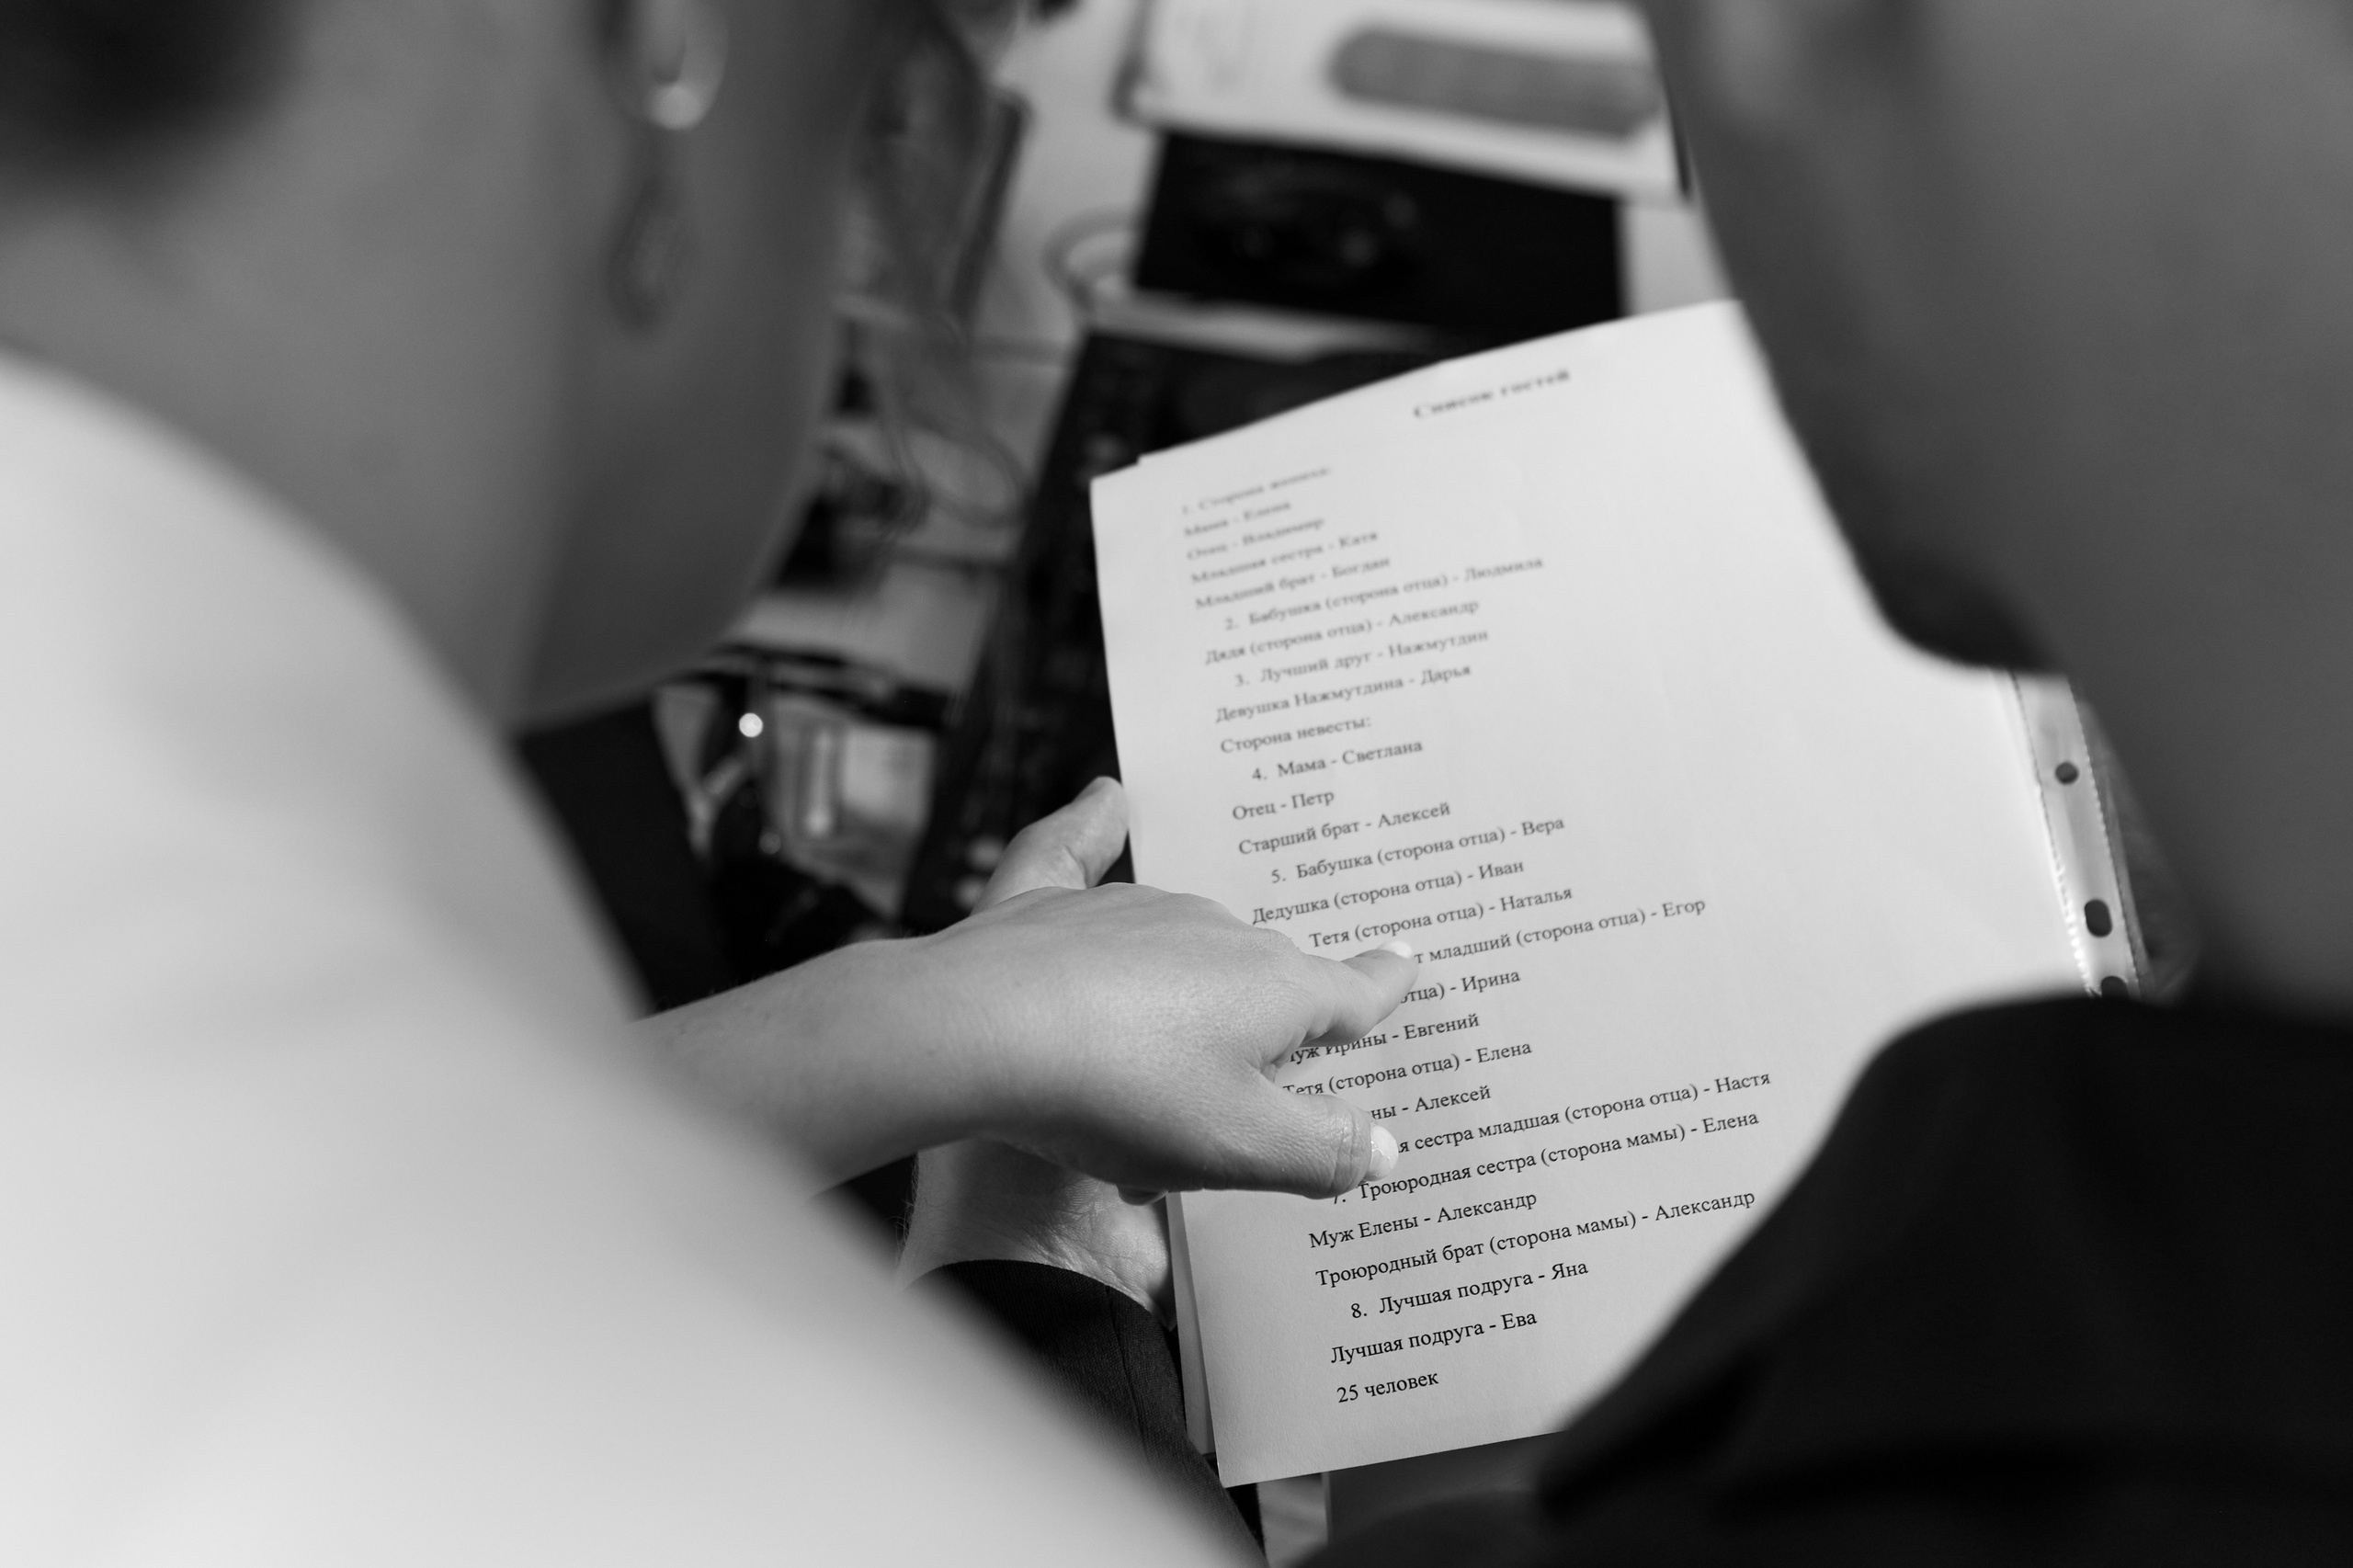 Список гостей
1. Сторона жениха:
Мама - Елена
Отец - Владимир
Младшая сестра - Катя
Младший брат - Богдан
2. Бабушка (сторона отца) - Людмила
Дядя (сторона отца) - Александр
3. Лучший друг - Нажмутдин
Девушка Нажмутдина - Дарья
Сторона невесты:
4. Мама - Светлана
Отец - Петр
Старший брат - Алексей
5. Бабушка (сторона отца) - Вера
Дедушка (сторона отца) - Иван
Тетя (сторона отца) - Наталья
младший (сторона отца) - Егор
отца) - Ирина
Муж Ирины - Евгений
Тетя (сторона отца) - Елена
- Алексей
сестра младшая (сторона отца) - Настя
7. Троюродная сестра (сторона мамы) - Елена
Муж Елены - Александр
Троюродный брат (сторона мамы) - Александр
8. Лучшая подруга - Яна
Лучшая подруга - Ева
25 человек